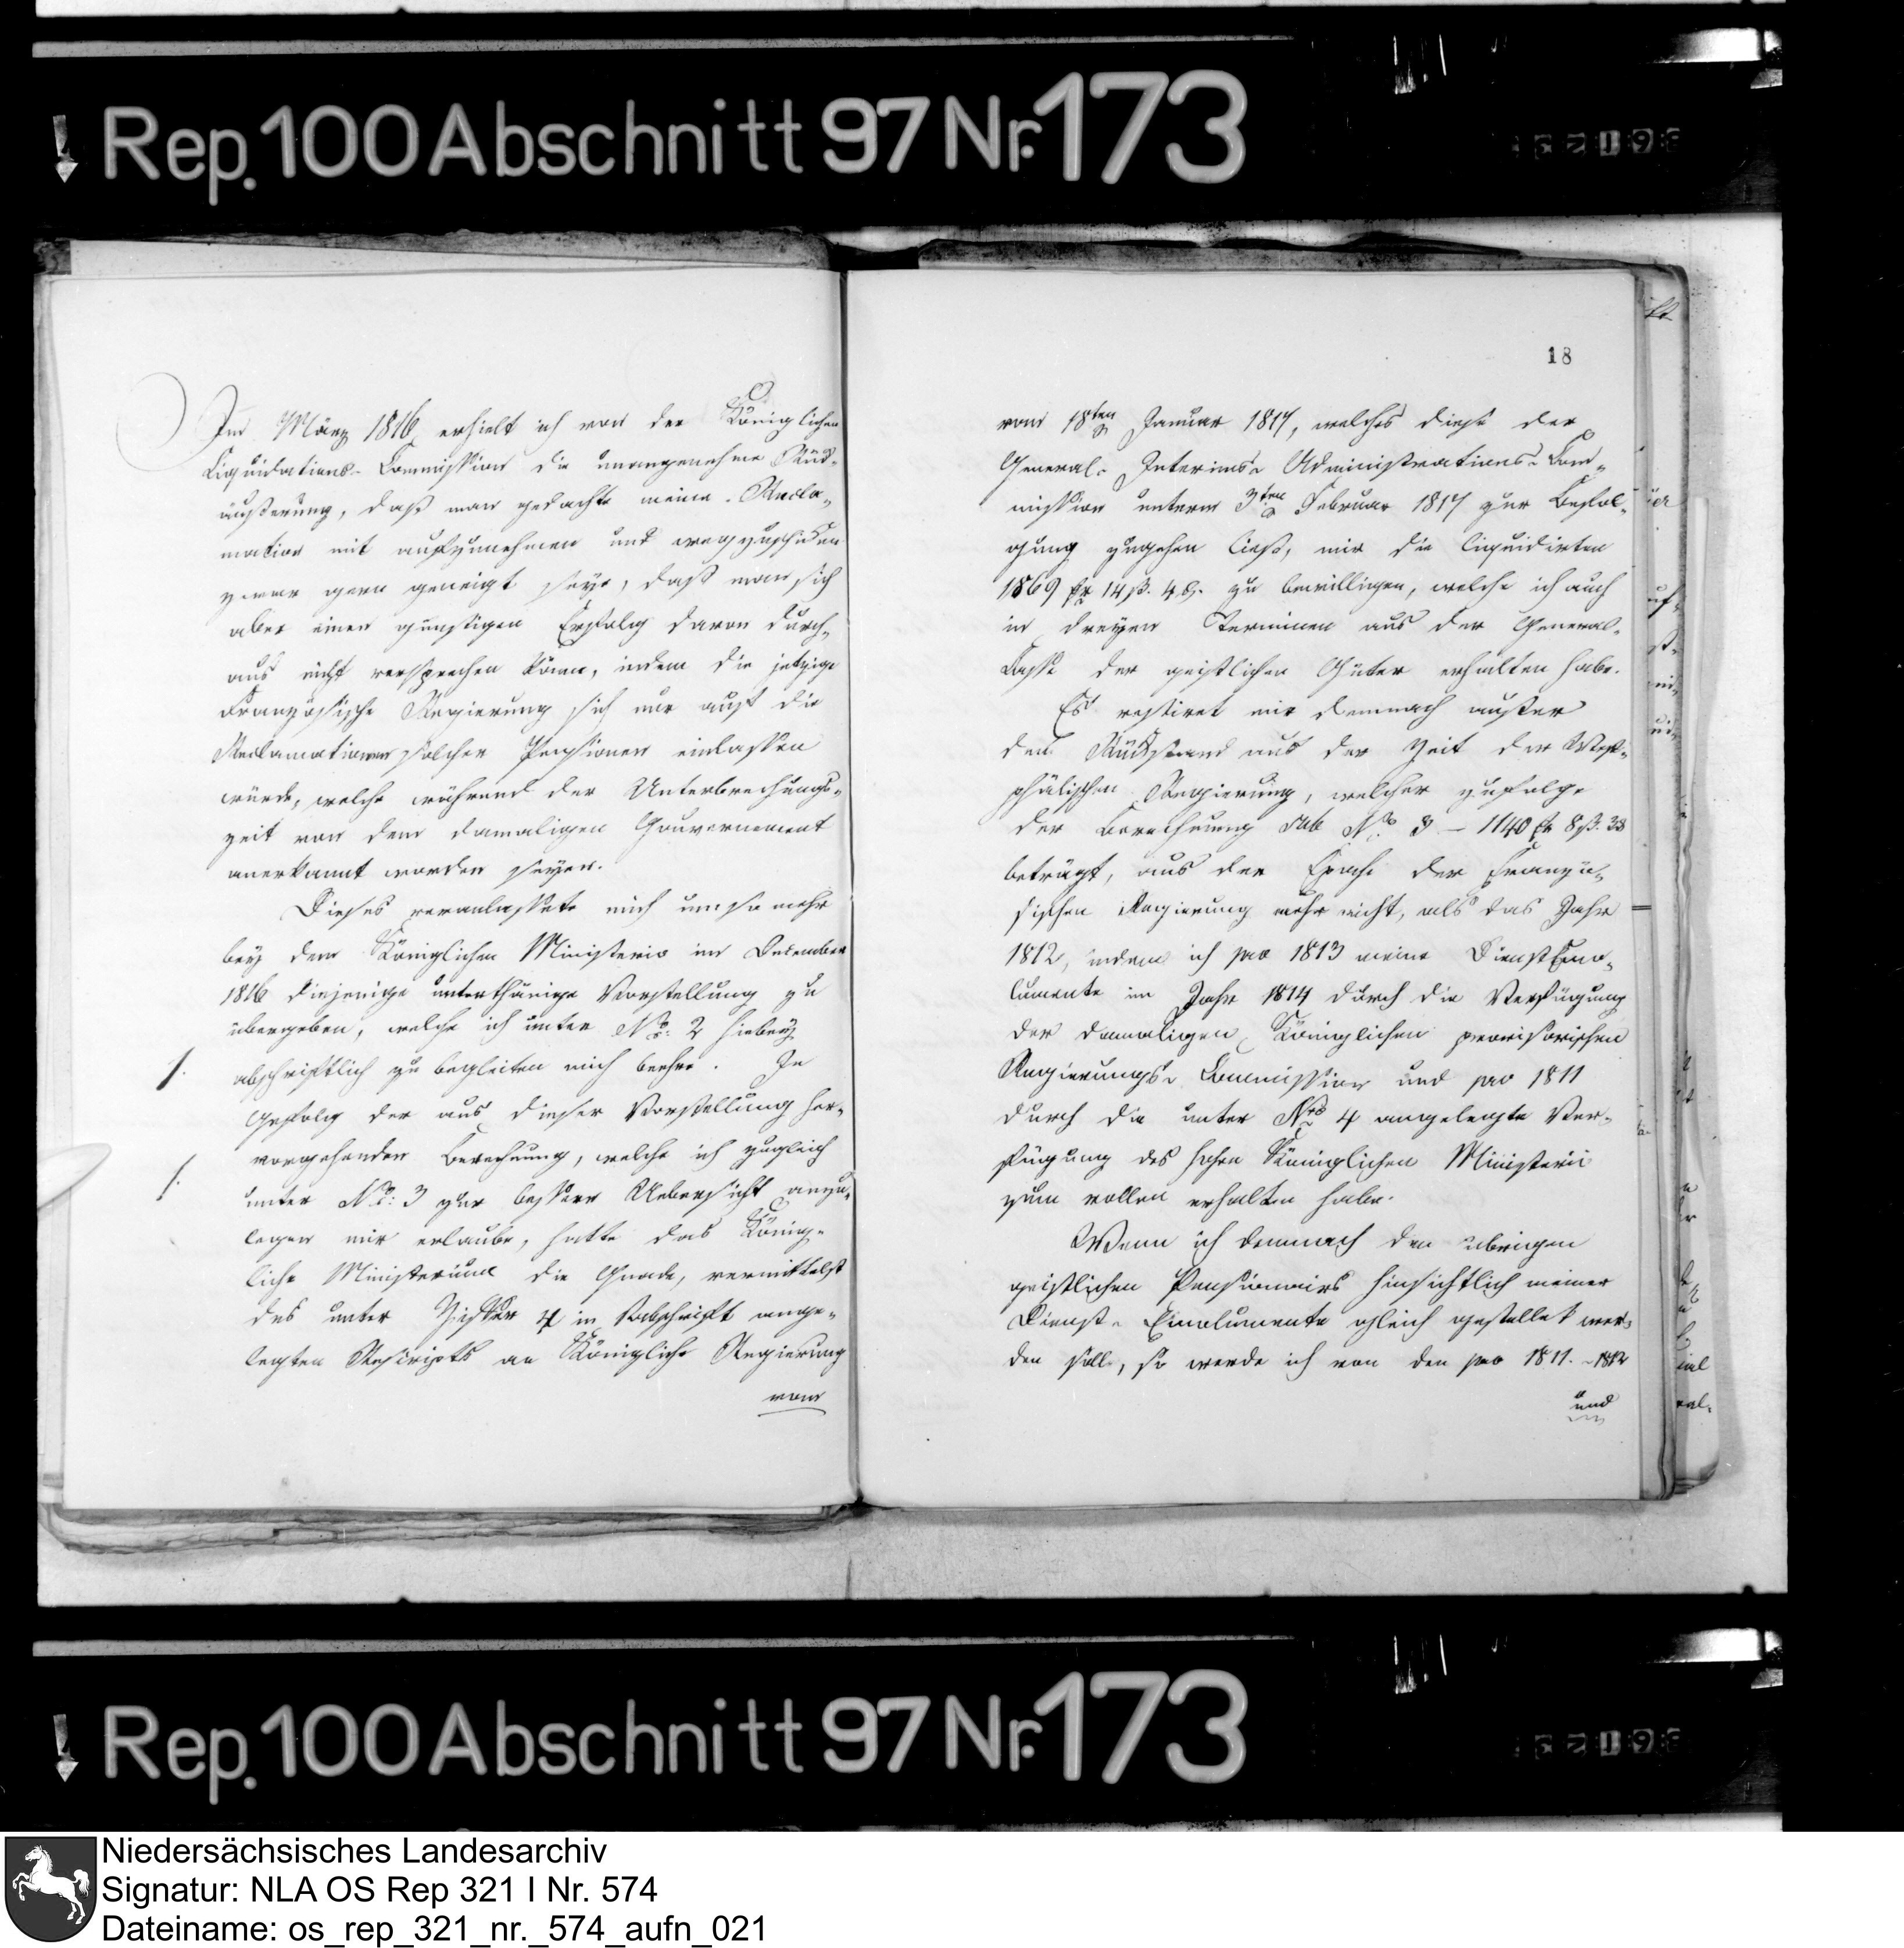 Rep. 100 Abschnitt 97 Nr. 173
Im März 1816 erhielt ich von der Königlichen
Liquidations-Commission die unangenehme Rük-
äußerung, daß man gedachte meine Recla-
mation mit aufzunehmen und wegzuschicken
zwar gern geneigt seye, daß man sich
aber einen günstigen Erfolg davon durch-
aus nicht versprechen könne, indem die jetzige
Französische Regierung sich nur auf die
Reclamationen solcher Pensionen einlassen
würde, welche während der Unterbrechungs-
zeit von dem damaligen Gouvernement
anerkannt worden seyen.
Dieses veranlassete mich um so mehr
bey dem Königlichen Ministerio im December
1816 diejenige unterthänige Vorstellung zu
übergeben, welche ich unter No: 2 hiebey
/. abschriftlich zu begleiten mich beehre. In
Gefolg der aus dieser Vorstellung her-
vorgehenden Berechnung, welche ich zugleich
/. unter No: 3 zur bessern Uebersicht anzu-
legen mir erlaube, hatte das König-
liche Ministerium die Gnade, vermittelst
des unter Ziffer 4 in Abschrift ange-
legten Rescripts an Königliche Regierung
vom
18
vom 18ten Januar 1817, welches diese der
General- Interims- Administrations- Com-
mission unterm 3ten Februar 1817 zur Befol-
gung zugehen ließ, mir die liquidirten
1869 fr 14 ß. 4 d. zu bewilligen, welche ich auch
in dreyen Terminen aus der General-
Casse der geistlichen Güter erhalten habe.
Es restiret mir demnach außer
dem Rückstand aus der Zeit der West-
phälischen Regierung, welcher zufolge
der Berechnung sub No 3 – 1140 fr 8 ß.
beträgt, aus der Epoche der Franzö-
sischen Regierung mehr nicht, als das Jahr
1812, indem ich pro 1813 meine Dienst Emo-
lumente im Jahr 1814 durch die Verfügung
der damaligen Königlichen provisorischen
Regierungs- Commission und pro 1811
durch die unter Nro 4 angelegte Ver-
fügung des hohen Königlichen Ministerii
zum vollen erhalten habe.
Wenn ich demnach den übrigen
geistlichen Pensionairs hinsichtlich meiner
Dienst- Emolumente gleich gestellet wer-
den soll, so werde ich von den pro 1811. - 1812
und
Rep. 100 Abschnitt 97 Nr. 173
Niedersächsisches Landesarchiv
Signatur: NLA OS Rep 321 I Nr. 574
Dateiname: os_rep_321_nr._574_aufn_021